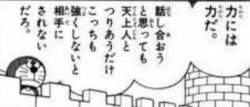 力には
力だ。
話し合おう
と思っても
天上人と
つりあうだけ
こっちも
強くしないと
相手に
されない
だろ。